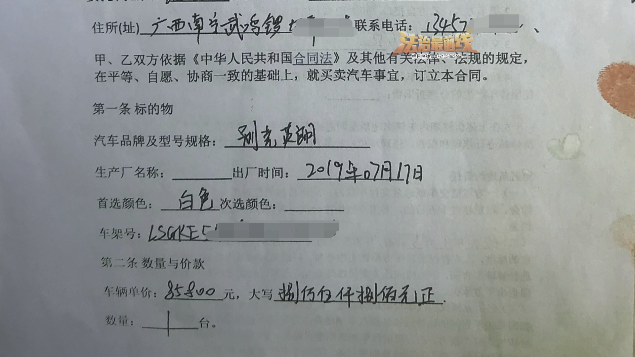 住所(址) 广西南宁武鸣县 联系电话: 13457
法治最前线
甲、乙双方依据《中华人民共和国合同法》及其他有关法律、法规的规定,
在平等、自愿、协商一致的基础上，就买卖汽车事宜，订立本合同。
第一条 标的物
汽车品牌及型号规格: 别克英朗
生产厂名称: 出厂时间: 2019年07月17日
首选颜色: 白色 次选颜色:
车架号: LSGKE5
第二条 数量与价款
车辆单价: 85800 元，大写 捌万伍仟捌佰元正
数量: 1 台。